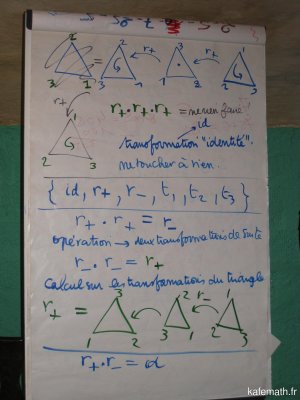 2 = 1 r+ 3 r+ 2
3 1 2 3 1 2 3 1
r+
1
2 3
r+ · r+ · r+ = ne rien faire
id
transformation "identité".
ne toucher à rien.
{ id, r+, r-, t1, t2, t3 }
r+ · r+ = r-
opération → deux transformations de suite
r- · r- = r+
Calcul sur les transformations du triangle
r+ = 3 2 r- 1
1 2 3 1 2 3
r+ · r- = id
kafemath.fr